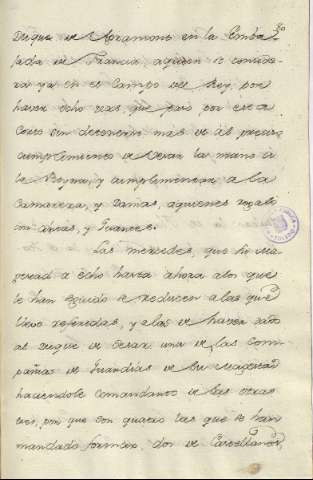 Duque de Agramont en la Emba
jada de Francia, aquien se consider
ra ya en el Campo del Rey, por
haver echo mas que paso por esta
Corte sin detenerse mas de al preciso
cumplimiento de vesar la mano a
la Reyna, y cumplimentar a la
Camarera, y Damas, aquienes regalo
con cintas, y Guantes.
Las mercedes, que su Ma
gestad a echo hasta ahora alos que
le han seguido se reducen alas que
llevo referidas, y alas de haver dado
al Duque de Sesar una de las Com
pañias de Guardias de su Magestad
haciendole Comandante de las otras
tres, por que son quatro las que se han
mandado formar, dos de Castellanos,